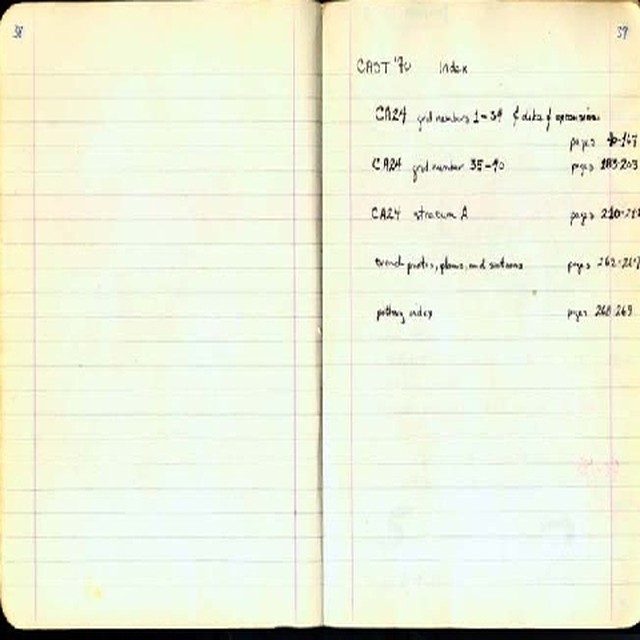 38
39
CAST '70 Index
CA24 grid numbers 1-34 & of expansion
pages -167
CA24 grid number 35-90 pages 183-203
CA24 stratum A pages 210-
trench photos, plans, and sections pages 262-267
pottery index pages 268 269